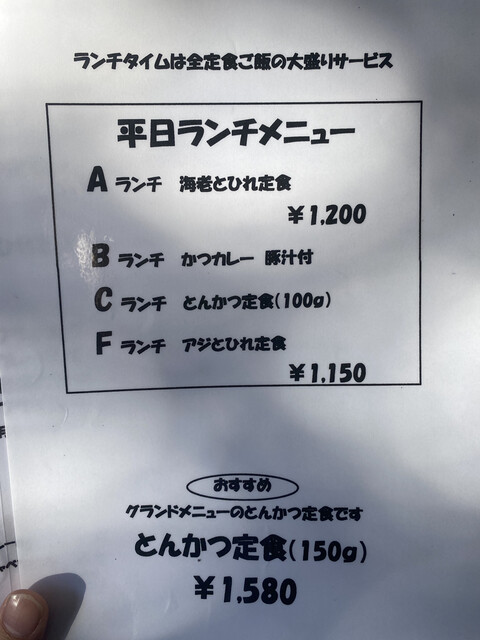 ランチタイムは全定食ご飯の大盛りサービス
平日ランチメニュー
A ランチ 海老とひれ定食
￥1,200
B ランチ かつカレー 豚汁付
C ランチ とんかつ定食(100g)
F ランチ アジとひれ定食
￥1,150
おすすめ
グランドメニューのとんかつ定食です
とんかつ定食(150g)
￥1,580